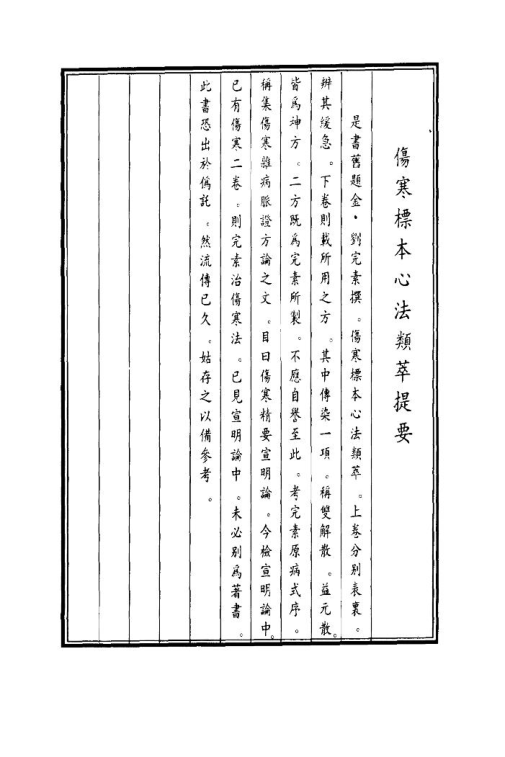 傷寒標本心法類萃提要
是書舊題金•劉完素撰。傷寒標本心法類萃。上卷分別表裏。
辨其緩急。下卷則載所用之方。其中傳染一項。稱雙解散。益元散。
皆爲神方。二方既爲完素所製。不應自譽至此。考完素原病式序。
稱集傷寒雜病脈證方論之文。目曰傷寒精要宣明論。今檢宣明論中。
已有傷寒二卷。則完素治傷寒法。已見宣明論中。未必別爲著書。
此書恐出於僞託。然流傳已久。姑存之以備參考。